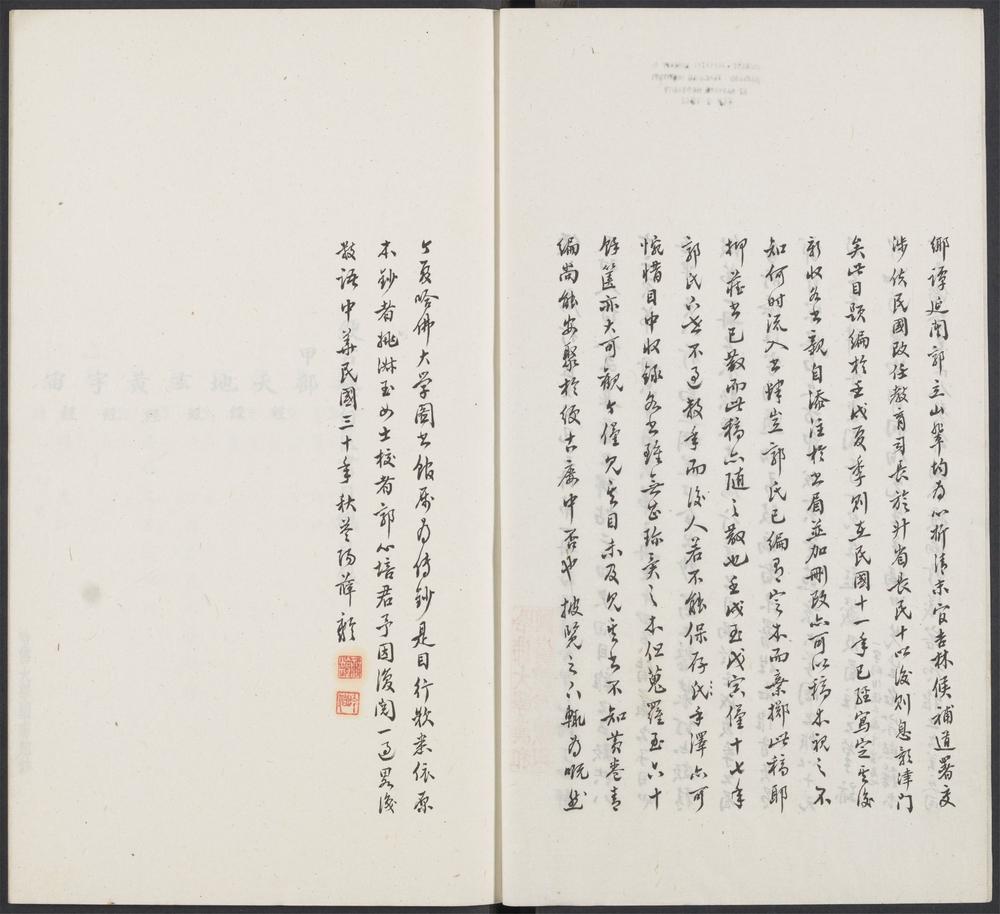 鄉譚延闓郭立山輩均為心折清末官吉林候補道署交
涉使民國改任教育司長於升省長民十以後則息影津門
矣此目題編於壬戌夏季則在民國十一年已經寫定其後
新收各書親自添注於書眉並加刪改亦可以稿本視之不
知何時流入書肆豈郭氏已編有定本而棄擲此稿耶
抑藏書已散而此稿亦隨之散也壬戌至戊寅僅十七年
郭氏下世不過數年而後人若不能保存氏之手澤亦可
惋惜目中收錄各書雖無甚珍異之本但蒐羅至六十
餘篋亦大可觀今僅見其目未及見其書不知黃卷青
編尚能安聚於緩古廔中否也披覽之下輒為嘅然
今夏哈佛大学圖書館屬為傳鈔是目行款悉依原
本鈔者姚淋玉女士校者郭心培君予因復閱一過畧識
數語中華民國三十年秋